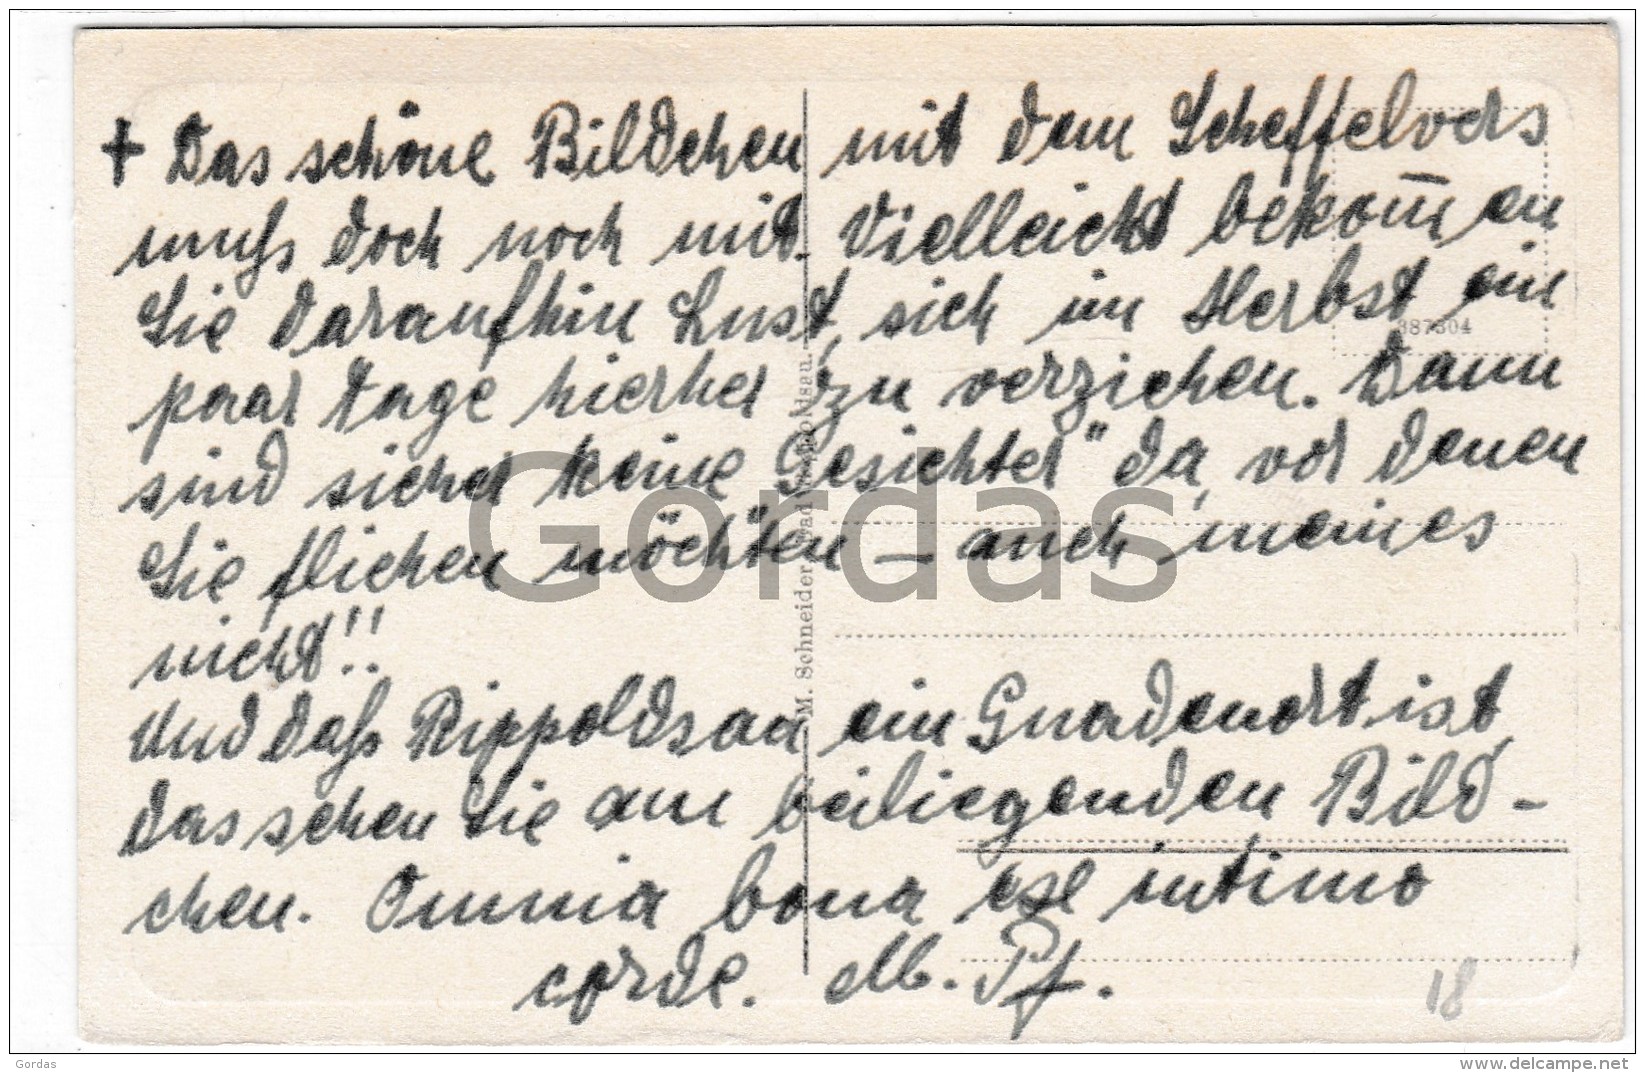 + Das schöne Bildchen mit dem Scheffelvers
muß doch noch mit. Vielleicht bekom̅en
Sie daraufhin Lust, sich im Herbst ein
paar Tage hierher zu verziehen. Dann
sind sicher keine „Gesichter" da, vor denen
Sie fliehen möchten – auch meines
nicht!!
Und daß Rippoldsau ein Gnadenort ist,
das sehen Sie am beiliegenden Bild-
chen. Omnia bona ex intimo
corde. M. Pf.
387304
M. Schneider, Bad Rippoldsau.
18
Gordas
Gordas
www.delcampe.net